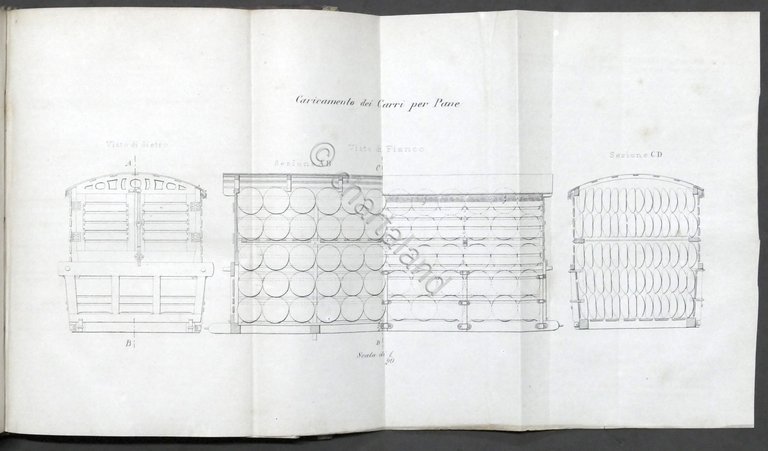 Caricamento dei Carri per Pane
Vista di Dietro
Vista di Fianco
Sezione AB
Sezione CD
A
C
B
D
Scala di 1/20
©anarialand